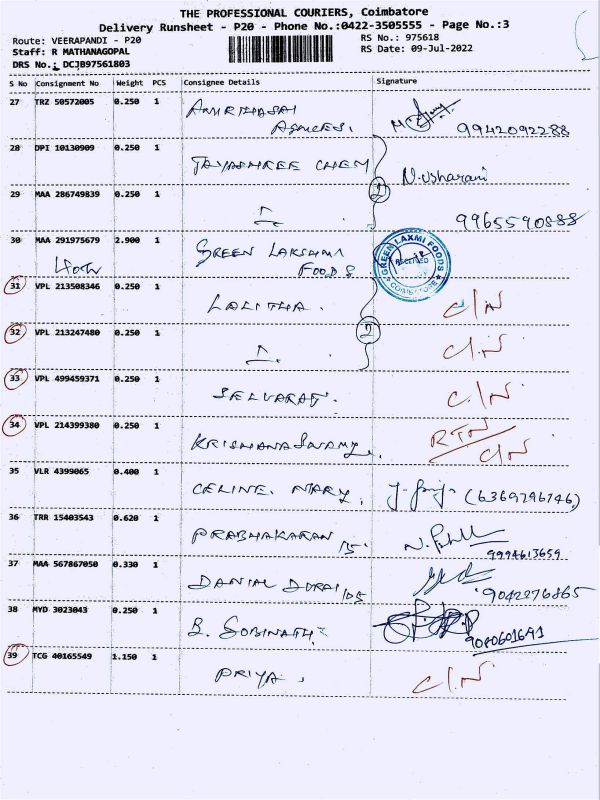 THE PROFESSIONAL COURIERS, Coimbatore
Delivery Runsheet - P20 - Phone No.:0422-3505555 - Page No.:3
Route: VEERAPANDI - P20 RS No.: 975618
Staff: R MATHANAGOPAL RS Date: 09-Jul-2022
DRS No.: DCJB97561803
S No Consignment No Weight PCS Consignee Details Signature
27 TRZ 50572005 0.250 1 9942092288
28 DPI 10130909 0.250 1 JAYASHREE CHEM N. Usharani
29 MAA 286749839 0.250 1 2 9965590888
30 MAA 291975679 2.900 1 GREEN LAKSHMI GREEN LAXMI FOODS RECEIVED COIMBATORE
FOODS
31 VPL 213508346 0.250 1 LALITHA. C/N
32 VPL 213247480 0.250 1 2 C/N
33 VPL 499459371 0.250 1 SELVARAJ. C/N
34 VPL 214399380 0.250 1 KRISHANASWAMY. RTN
C/N
35 VLR 4399065 0.400 1 CELINE. MARY. (6369296746)
36 TRR 15403543 0.620 1 PRABHAKARAN 9994613659
37 MAA 567867050 0.330 1 DANIAL DURAI 9042276865
38 MYD 3023043 0.250 1 B. GOBINATH
39 TCG 40165549 1.150 1 PRIYA. C/N